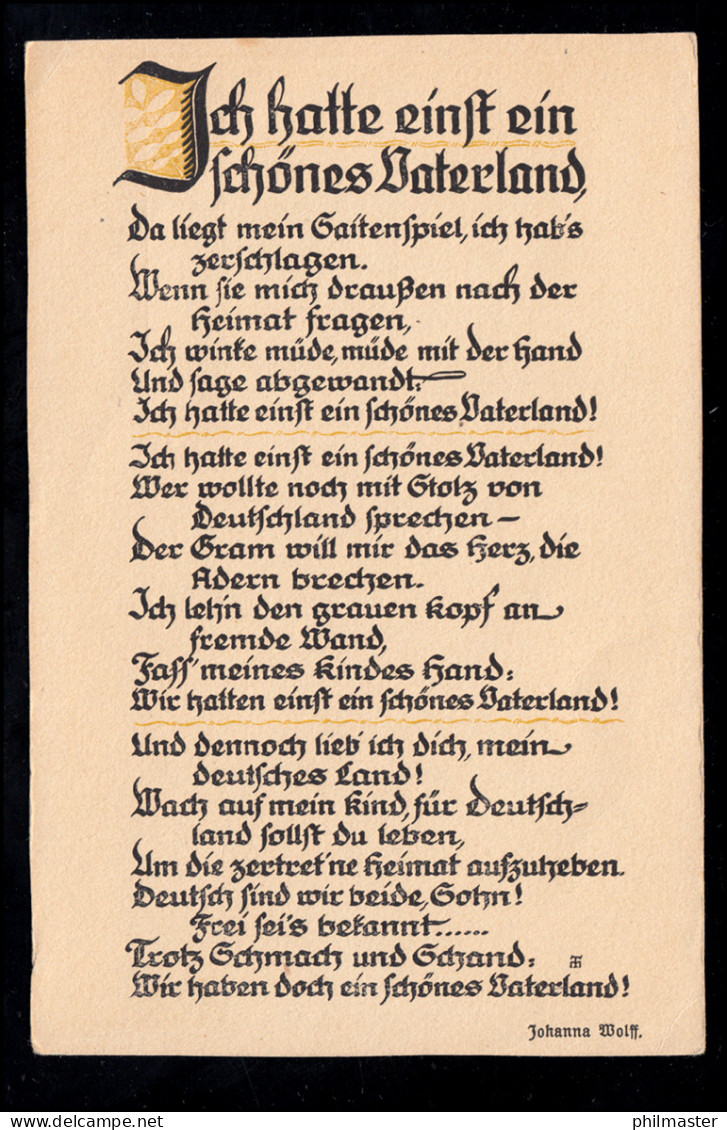 Ich hatte einst ein
schönes Vaterland,
Da liegt mein Saitenspiel, ich hab's
zerschlagen.
Wenn sie mich draußen nach der
Heimat fragen,
Ich winke müde, müde mit der Hand
Und sage abgewandt:
Ich hatte einst ein schönes Vaterland!
Ich hatte einst ein schönes Vaterland!
Wer wollte noch mit Stolz von
Deutschland sprechen –
Der Gram will mir das Herz, die
Adern brechen.
Ich lehn den grauen Kopf an
fremde Wand,
Fass' meines Kindes Hand:
Wir hatten einst ein schönes Vaterland!
Und dennoch lieb' ich dich, mein
deutsches Land!
Wach auf mein Kind, für Deutsch=
land sollst du leben,
Um die zertret'ne Heimat aufzuheben.
Deutsch sind wir beide, Sohn!
Frei sei's bekannt......
Trotz Schmach und Schand:
Wir haben doch ein schönes Vaterland!
Johanna Wolff.
philmaster